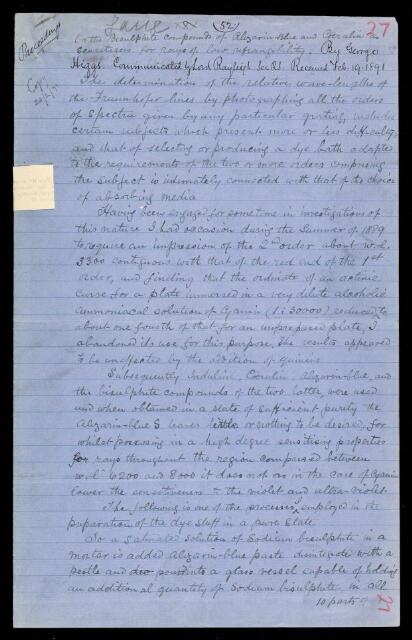 (52)
27
Proceedings
On the Bisulphite compounds of Alizarin-blue and Cœrulin as
sensitisers for rays of low refrangibility. By George
Higgs. Communicated by Lord Rayleigh Sec. R.S. Received Feb. 19. 1891
The determination of the relative wave-lengths of
the Fraunhofer lines by photographing all the orders
of Spectra given by any particular grating, includes
certain subjects which present more or less difficulty,
and that of selecting or producing a dye bath adapted
to the requirements of the two or more orders comprising
the subject is intimately connected with that of the choice
of absorbing media
Having been engaged for sometime in investigations of
this nature I had occasion during the Summer of 1889
to require an impression of the 2nd order about w.l.
3300 contiguous with that of the red end of the 1st
order, and finding that the ordinate of an actinic
curve for a plate immersed in a very dilute alcoholic
ammoniacal solution of Cyanin (1:30000) reduced to
about one fourth of that for an unprepared plate, I
abandoned its use for this purpose, The results appeared
to be unaffected by the addition of quinine
Subsequently Indulin, Cœrulin, Alizarin-blue, and
the bisulphite compounds of the two latter, were used
and when obtained in a state of sufficient purity the
Alizarin-blue S leaves little or nothing to be desired, for
whilst possessing in a high degree sensitising properties
for rays throughout the region comprised between
w.l. 6200 and 8000 it does not as in the case of Cyanin
lower the sensitiveness to the violet and ultra-violet
The following is one of the processes employed in the
preparation of the dye stuff in a pure State
To a saturated solution of Sodium bisulphite in a
mortar is added Alizarin-blue paste disintegrate with a
pestle and pour into a glass vessel capable of holding
an additional quantity of Sodium bisulphite, in all
10 parts of
27